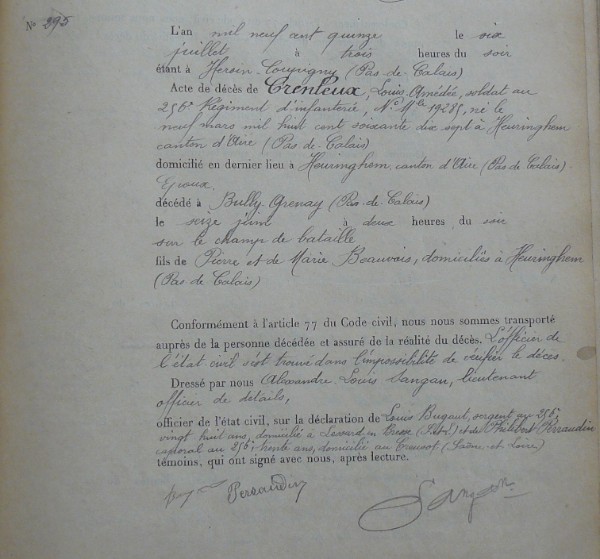 N° 295
L'an mil neuf cent quinze le six
juillet à trois heures du soir
étant à Hersin-Coupigny (Pas-de-Calais)
Acte de décès de Crenleux, Louis Amédée, soldat au
256e Régiment d'infanterie, N° Mle 19285, né le
neuf mars mil huit cent soixante dix sept à Heuringhem
canton d'Aire (Pas-de-Calais)
domicilié en dernier lieu à Heuringhem, canton d'Aire (Pas-de-Calais).
Epoux
décédé à Bully-Grenay (Pas-de-Calais)
le seize juin à deux heures du soir
sur le champ de bataille
fils de Pierre et de Marie Beauvois, domiciliés à Heuringhem
(Pas-de-Calais)
Conformément à l'article 77 du Code civil, nous nous sommes transporté
auprès de la personne décédée et assuré de la réalité du décès. L'officier de
l'état civil s'est trouvé dans l'impossibilité de vérifier le décès.
Dressé par nous Alexandre Louis Sangan, lieutenant
officier de détails,
officier de l'état civil, sur la déclaration de Louis Bugaut, sergent au 256e,
vingt huit ans, domicilié à Savard en Bresse et de Philibert Perraudin
caporal au 256e, trente ans, domicilié au Creusot (Saône et Loire)
témoins, qui ont signé avec nous, après lecture.
Perraudin